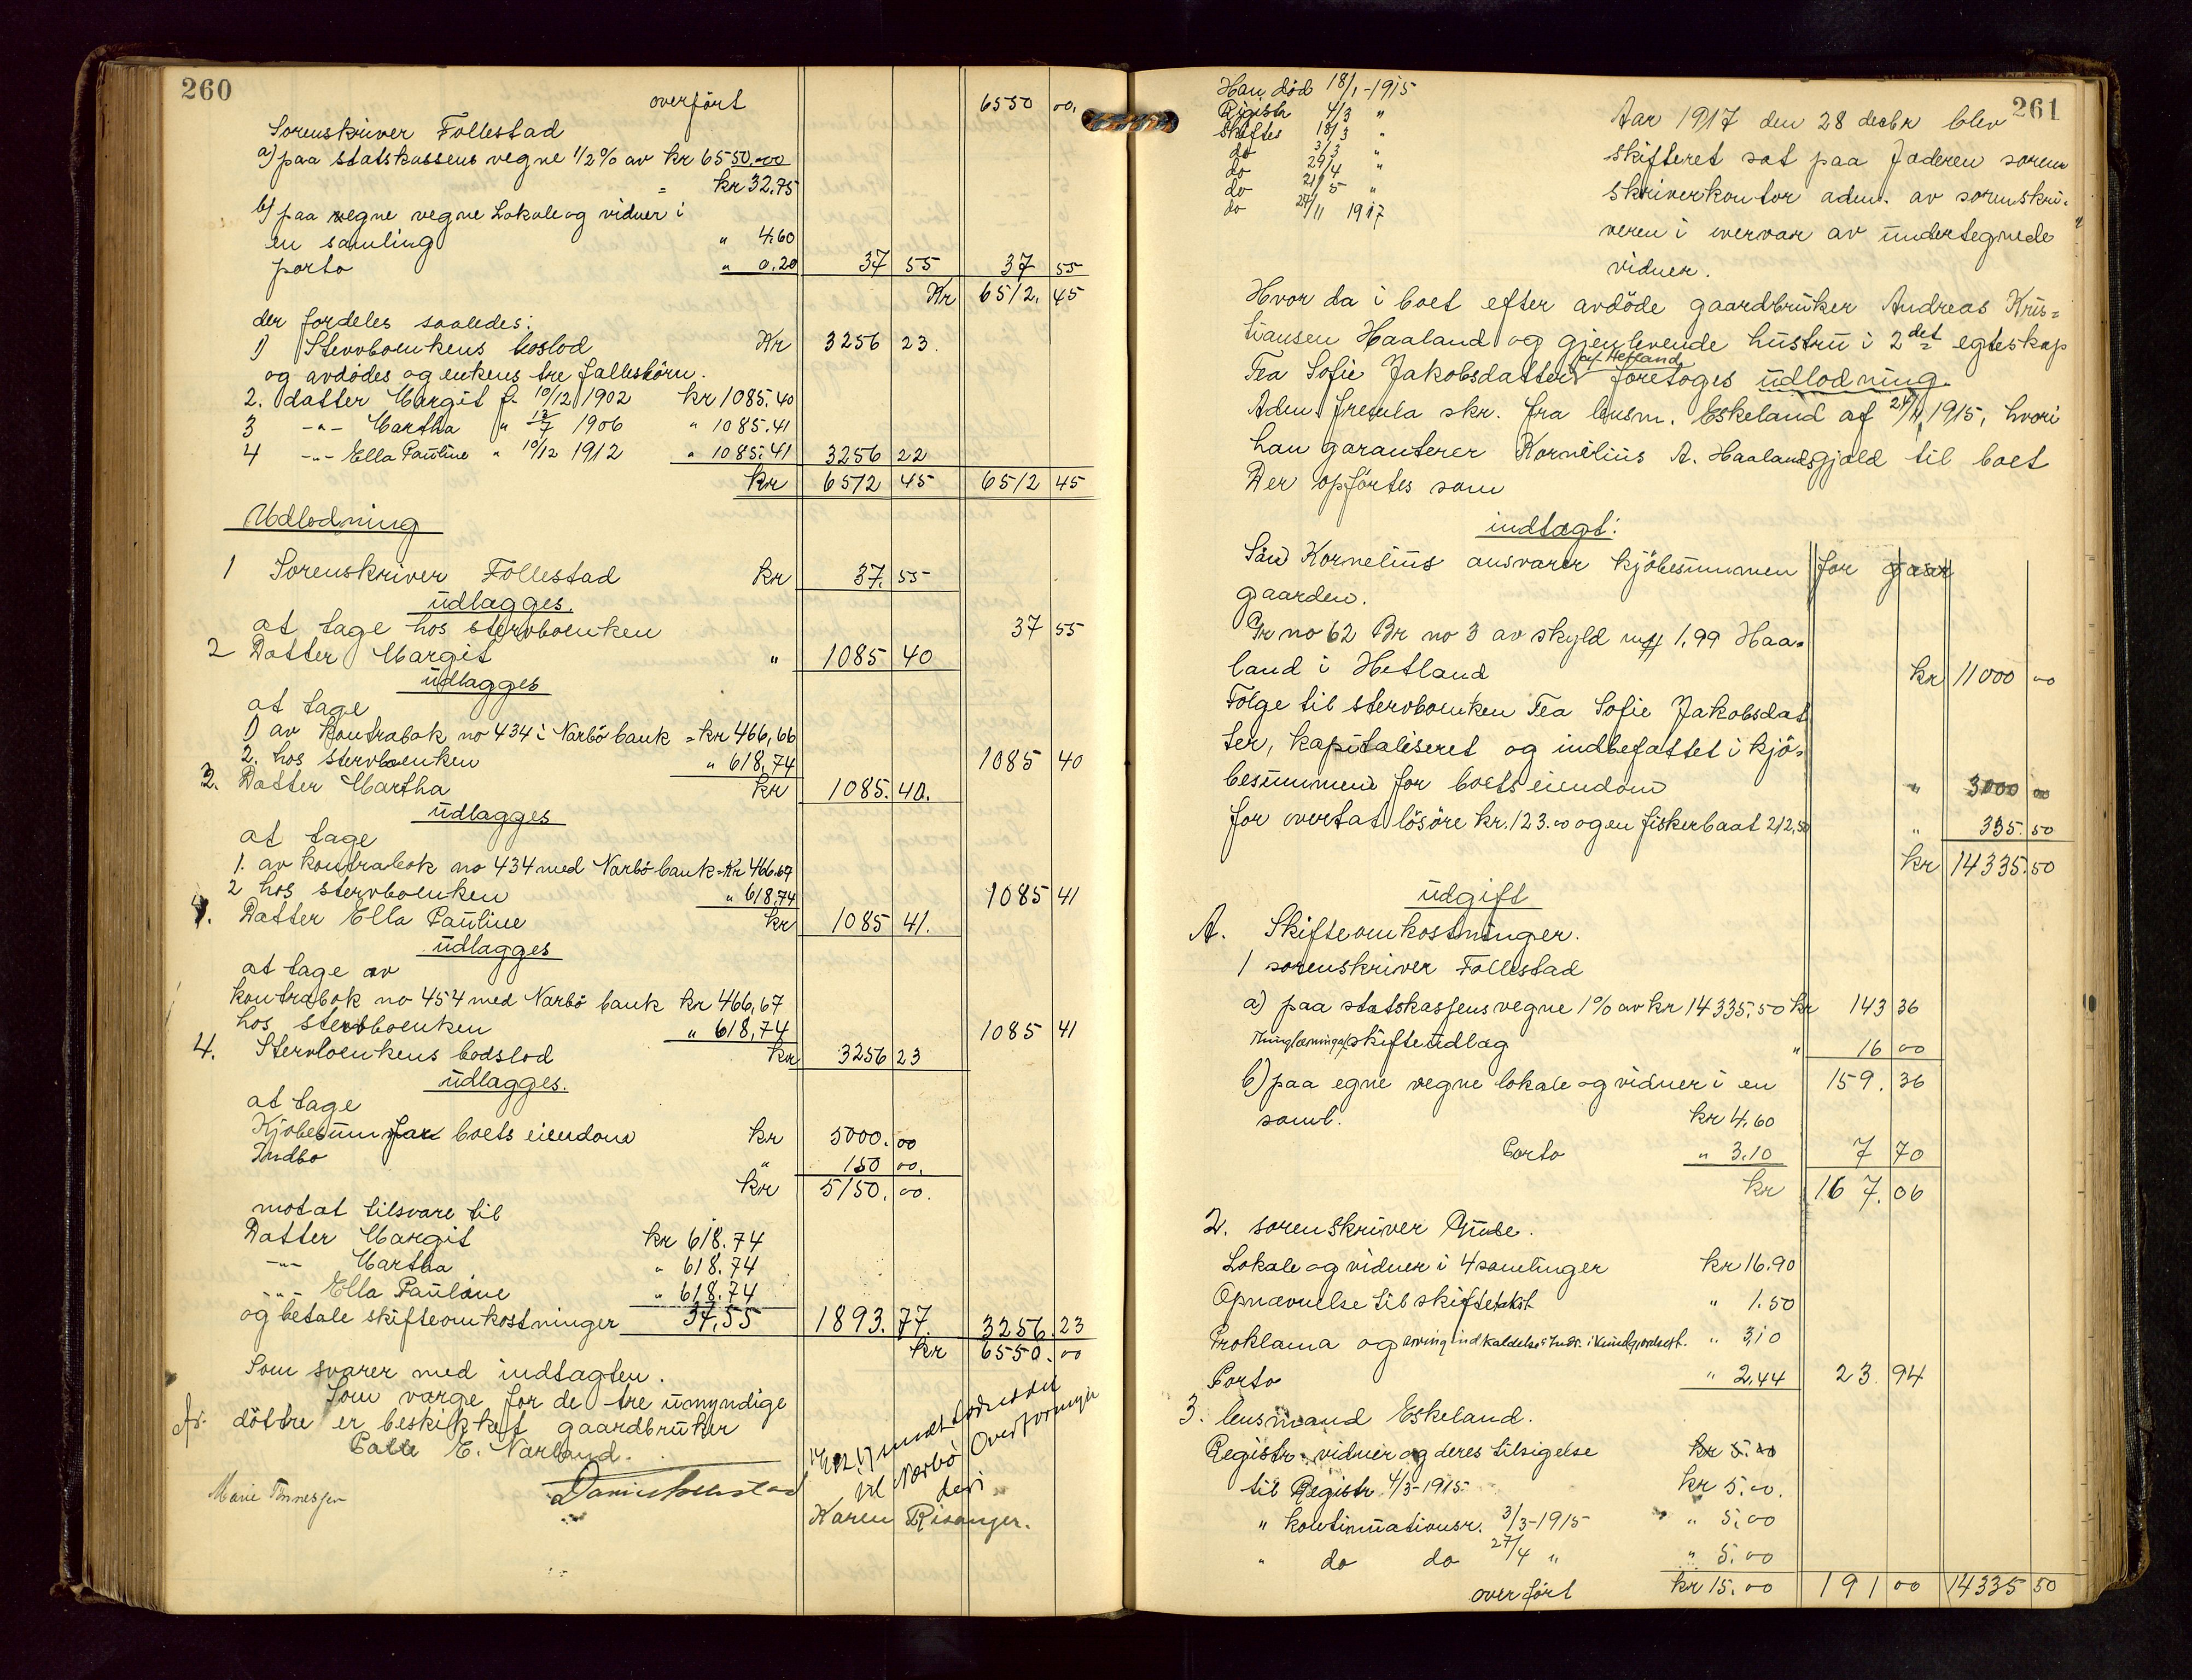 260
overført 6550 00.
Sorenskriver Follestad
a) paa statskassens vegne 1/2% av kr 6550.00
= kr 32.75
b) paa vegne vegne Lokale og vidner i
en samling " 4.60
porto " 0.20 37 55 37 55
Kr 6512. 45
der fordeles saaledes:
1) Stervboenkens boslod Kr 3256 23.
og avdødes og enkens tre fællesbörn.
2. datter Margit f. 10/12 1902 kr 1085.40
3 -"- Martha " 13/7 1906 " 1085.41
4 -"- Ella Pauline " 10/12 1912 " 1085.41 3256 22
kr 6512 45 6512 45
Udlodning
1 Sorenskriver Follestad kr 37. 55
udlægges.
at tage hos stervboenken 37 55
2 Datter Margit " 1085 40
udlægges
at tage
1) av Kontrabok no 434 i Nærbö bank = kr 466,66
2. hos stervboenken " 618,74 1085 40
3. Datter Martha kr 1085. 40.
udlægges
at tage
1. av kontrabok no 434 med Nærbö bank = kr 466.67
2 hos stervboenken " 618,74 1085 41
4. Datter Ella Pauline kr 1085 41.
udlægges
at tage av
kontrabok no 454 med Nærbö bank kr 466,67
hos stervboenken " 618,74 1085 41
4. Stervboenkens bodslod kr 3256 23
udlægges.
at tage
Kjöbesum for boets eiendom kr 5000. 00
Indbo " 150 00.
kr 5150. 00.
mot at tilsvare til
Datter Margit kr 618.74
-"- Martha " 618.74
-"- Ella Pauline " 618.74
og betale skifteomkostninger 37,55 1893. 77. 3256. 23
kr 6550. 00
Som svarer med indtægten.
Som værge for de tre umyndige
döttre er beskikket gaardbruker
E. Nærland.
til Nærbö Overformynderi
Marie Tönnessen
Karen Risanger.
261
Han död 18/1-1915
Registr 4/3 "
Skiftes 18/3 "
do 3/3 "
do 29/4 "
do 21/5 "
do 27/11 1917
Aar 1917 den 28 decbr blev
skifteret sat paa Jæderen soren
skriverkontor adm. av sorenskri-
veren i overvær av undertegnede
vidner.
Hvor da i boet efter avdöde gaardbruker Andreas Kris=
tiansen Haaland og gjenlevende hustru i 2det egteskap
af Hetland
Tea Sofie Jakobsdatter foretoges udlodning.
Adm. fremla skr. fra lensm. Eskeland af 24/11 1915, hvori
han garanterer Kornelius A. Haalands gjæld til boet
Der opförtes som
indtægt:
Sön Kornelius ansvarer kjöbesummen for gaar
gaarden.
Gr no 62 Br no 3 av skyld mrk 1,99 Haa=
land i Hetland kr 11000 00
Fölge til stervboenken Tea Sofie Jakobsdat
ter, kapitaliseret og indbefattet i kjö=
besummen for boets eiendom " 3000 00
for overtat lösöre kr. 123.00 og en fiskerbaat 212,50 " 335. 50
kr 14335. 50
udgift
A. Skifteomkostninger.
1 sorenskriver Follestad
a) paa statskassens vegne 1% av kr 14335,50 kr 143 36
Tinglæsning af skifteudlæg " 16 00
b) paa egne vegne lokale og vidner i en 159. 36
saml. kr 4,60
Porto " 3.10 7 70
kr 167. 06
2. sorenskriver Gude.
Lokale og vidner i 4 samlinger kr 16.90
Opnævnelse til skiftetakst " 1.50
Proklama og arving indkaldelse i Kundgjörelsest. " 3,10
Porto " 2,44 23. 94
3. lensmand Eskeland.
Registr. vidner og deres tilsigelse kr 5.00
til Registr 4/3-1915 kr 5.00.
" kontinuationsr. 3/3-1915 " 5.00
" do do 27/4 " " 5.00
overført kr 15.00 191 00 14335 50